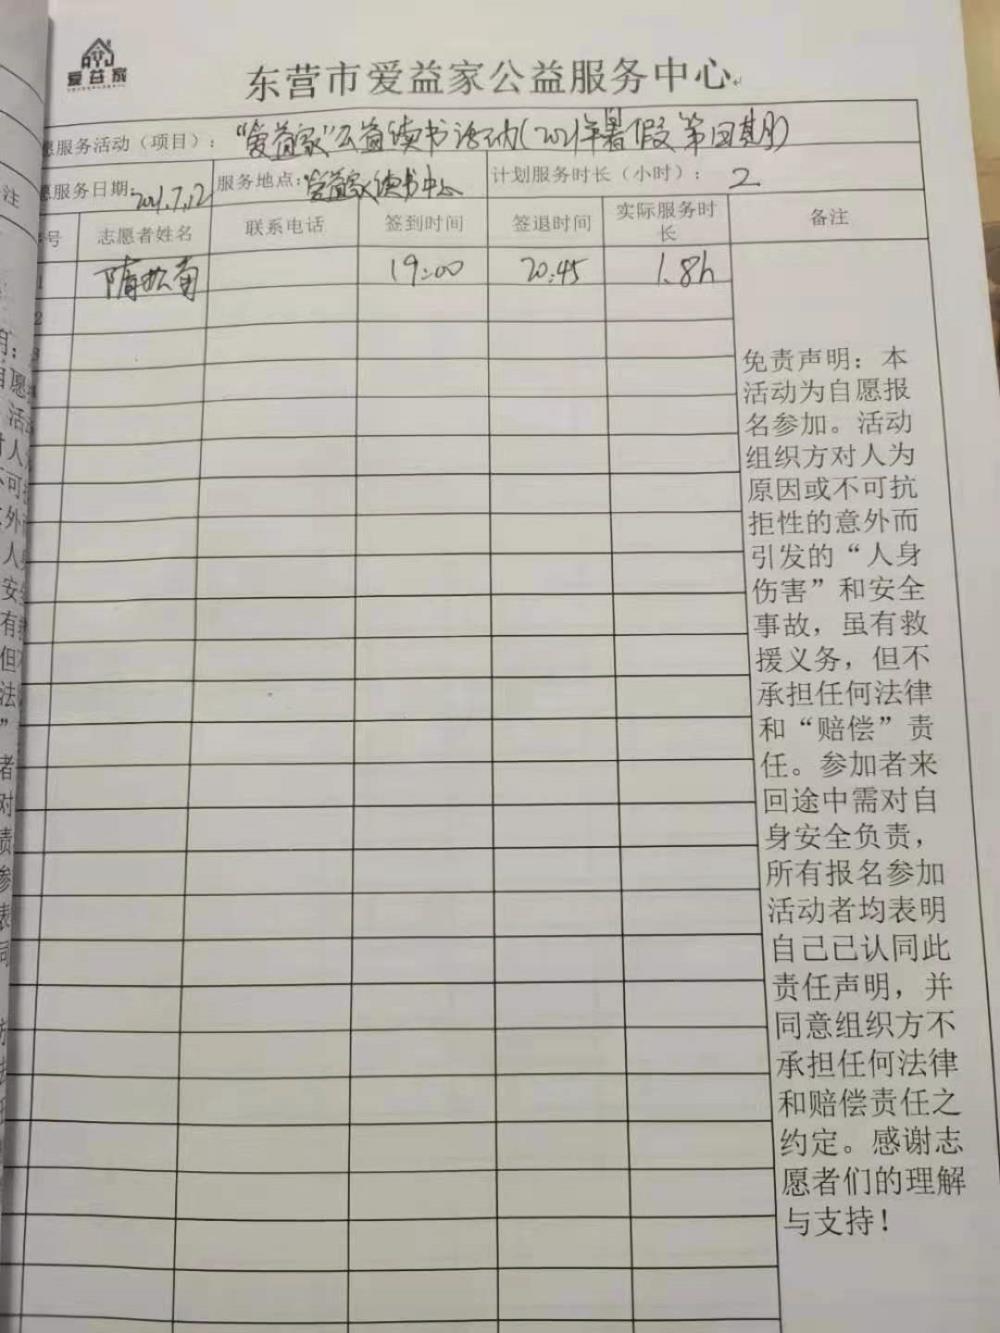 爱益家
东营市爱益家公益服务中心
愿服务活动（项目）：“爱益家”公益读书活动（2021年暑假第四期）
愿服务日期：2021.7.12 服务地点：爱益家读书中心 计划服务时长（小时）：2
号 志愿者姓名 联系电话 签到时间 签退时间 实际服务时长 备注
1 隋 19:00 20:45 1.8h
2
免责声明：本
活动为自愿报
名参加。活动
组织方对人为
原因或不可抗
拒性的意外而
引发的“人身
伤害”和安全
事故，虽有救
援义务，但不
承担任何法律
和“赔偿”责
任。参加者来
回途中需对自
身安全负责，
所有报名参加
活动者均表明
自己已认同此
责任声明，并
同意组织方不
承担任何法律
和赔偿责任之
约定。感谢志
愿者们的理解
与支持！